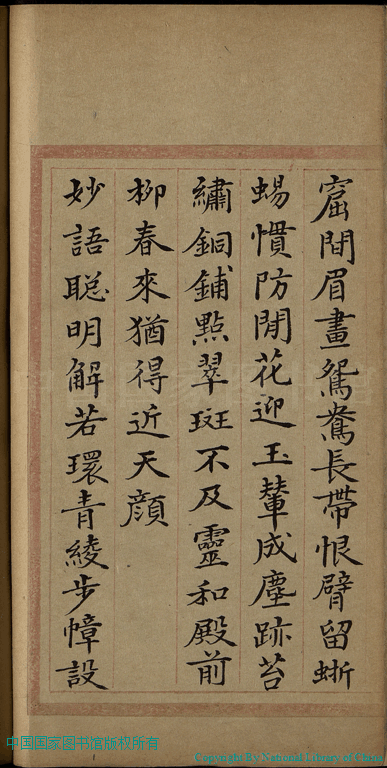 窟間眉畫鴛鴦長帶恨臂留蜥
蜴慣防閒花迎玉輦成塵跡苔
繡銅鋪點翠斑不及靈和殿前
柳春來猶得近天顔
妙語聡明解若環青綾步幛設
中国国家图书馆版权所有
Copyright By National Library of China